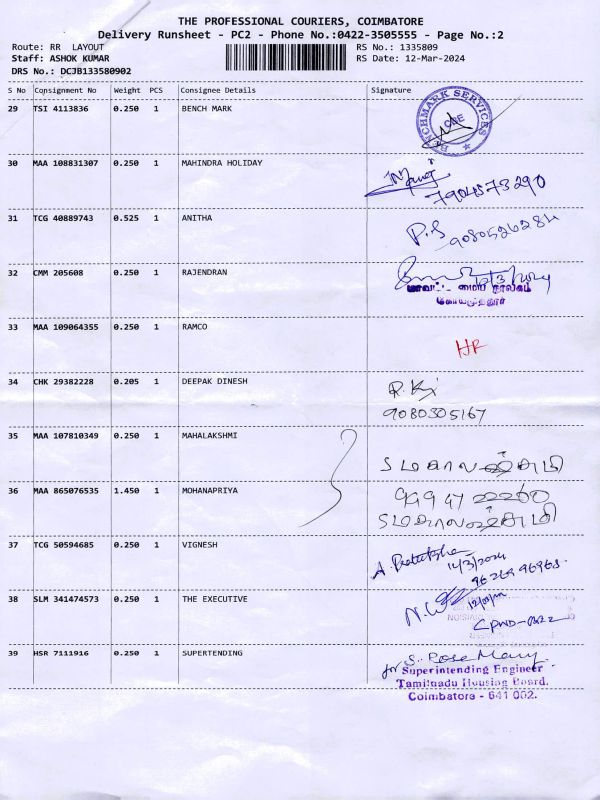 THE PROFESSIONAL COURIERS, COIMBATORE
Delivery Runsheet - PC2 - Phone No.:0422-3505555 - Page No.:2
Route: RR LAYOUT
RS No.: 1335809
Staff: ASHOK KUMAR
RS Date: 12-Mar-2024
DRS No.: DCJB133580902
S No Consignment No Weight PCS Consignee Details Signature
29 TSI 4113836 0.250 1 BENCH MARK
BENCHMARK SERVICES
CBE
30 MAA 108831307 0.250 1 MAHINDRA HOLIDAY
7904873290
31 TCG 40889743 0.525 1 ANITHA
P.S
9080526284
32 CMM 205608 0.250 1 RAJENDRAN
12/3/2024
மாவட்ட மைய நூலகம்
கோயமுத்தூர்
33 MAA 109064355 0.250 1 RAMCO
HR
34 CHK 29382228 0.205 1 DEEPAK DINESH
9080305167
35 MAA 107810349 0.250 1 MAHALAKSHMI
36 MAA 865076535 1.450 1 MOHANAPRIYA
99947 22260
37 TCG 50594685 0.250 1 VIGNESH
96269 96968
38 SLM 341474573 0.250 1 THE EXECUTIVE
39 HSR 7111916 0.250 1 SUPERTENDING
S. Rose Mary
for Superintending Engineer
Tamilnadu Housing Board.
Coimbatore - 641 002.